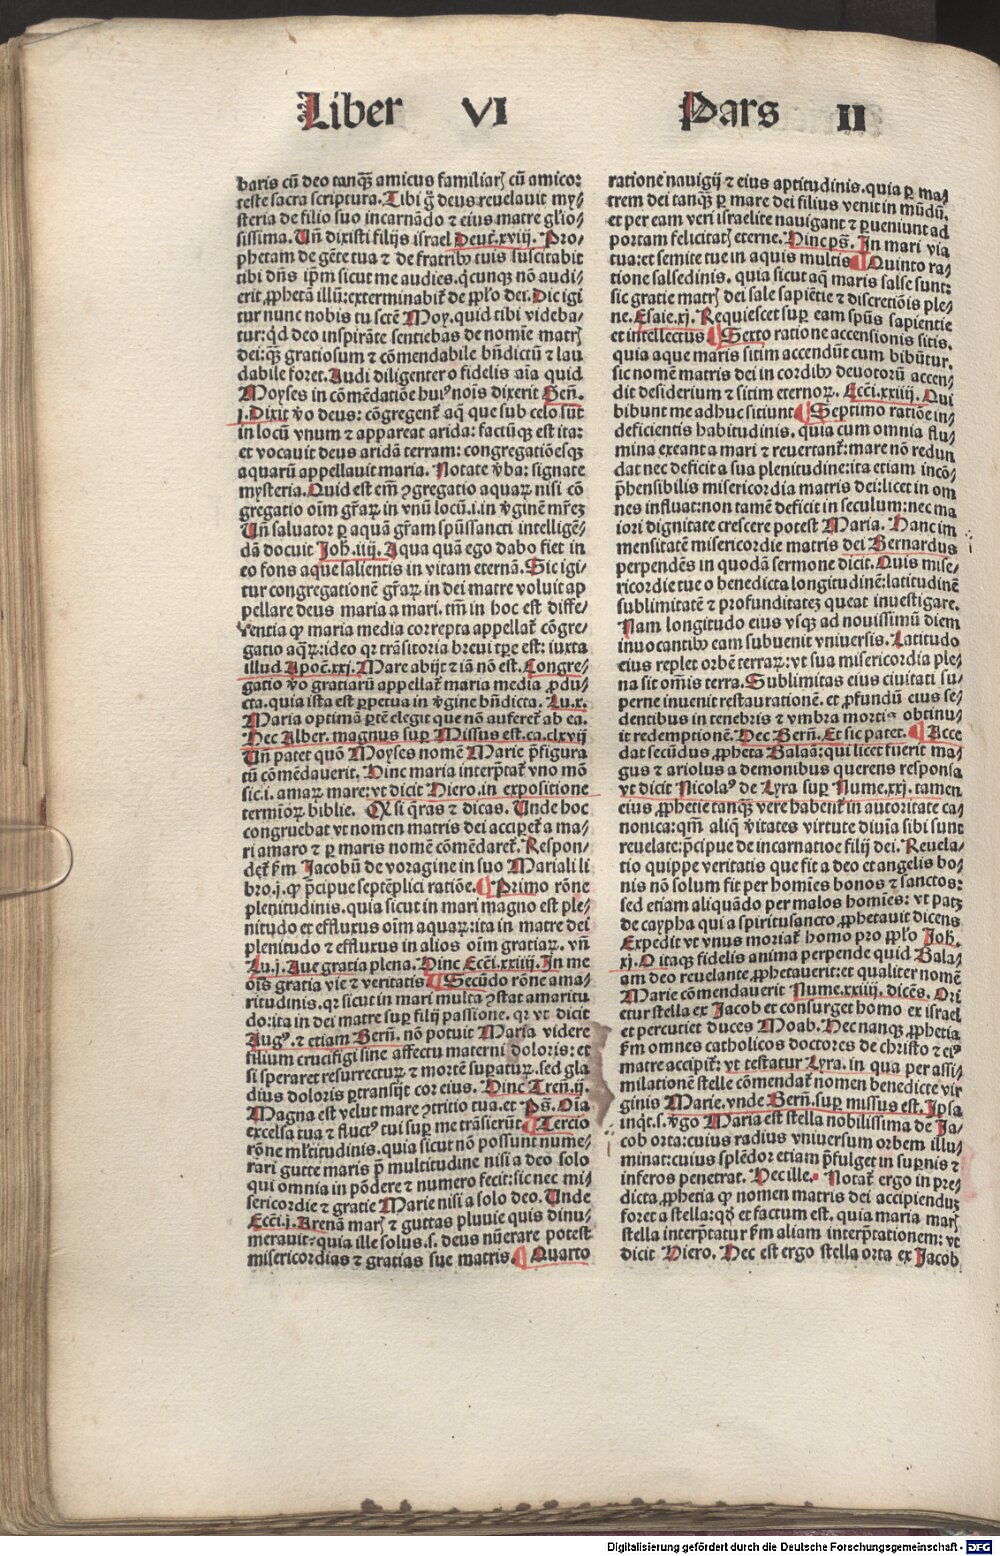 Liber VI Pars II
baris cū deo tanq̃ȝ amicus familiarꝭ cū amico:
teste sacra scriptura. Tibi g̃ deus reuelauit my⸗
steria de filio suo incarnãdo ⁊ eius matre gl'io⸗
sissima. Vñ dixisti filijs israel Deut̃.xviij. Pro⸗
phetam de gẽte tua ⁊ de fratribꝰ tuis suscitabit
tibi dñs ip̃m sicut me audies. q̃cunqꝫ nõ audi⸗
erit ꝓphetã illũ: exterminabit̃ de pp̃lo dei. Dic igi
tur nunc nobis tu sct̃e Moy. quid tibi videba⸗
tur: q̃d deo inspirãte sentiebas de nomĩe matrꝭ
dei: qȝ gratiosum ⁊ cõmendabile bñdictũ ⁊ lau
dabile foret. Audi diligenter o fidelis aĩa quid
Moyses in cõmẽdatiõe huiꝰ nois dixerit Geñ.
j. Dixit ṽo deus: cõgregent̃ aq̃ que sub celo sũt
in locũ vnum ⁊ appareat arida: factũqꝫ est ita:
et vocauit deus aridã terram: congregatiõesqꝫ
aquarũ appellauit maria. Notate ṽba: signate
mysteria. Quid est em̃ ꝯgregatio aquaꝝ nisi cõ
gregatio oĩm gr̃aꝝ in vnũ locũ .i. in ṽginẽ mr̃eȝ
Vñ saluator ꝑ aquã gr̃am sp̃ussancti intelligẽ⸗
dã docuit Joh̃.iiij. Aqua quã ego dabo fiet in
eo fons aque salientis in vitam eternã. Sic igi⸗
tur congregationẽ gr̃aꝝ in dei matre voluit ap
pellare deus maria a mari. tm̃ in hoc est diffe⸗
rentia qꝫ maria media correpta appellat̃ cõgre⸗
gatio aq̃ꝝ: ideo qꝛ trãsitoria breui tp̃e est: iuxta
illud Apoc̃.xxj. Mare abijt ⁊ iã nõ est. Congre⸗
gatio ṽo gratiarũ appellat̃ maria media ꝓdu⸗
cta. quia ista est ꝑpetua in ṽgine bñdicta. Lu.x.
Maria optimã ꝑtẽ elegit que nõ auferet̃ ab ea.
Hec Alber. magnus suꝑ Missus est. ca. clxvij
Vñ patet quõ Moyses nomẽ Marie p̃figura
tũ cõmẽdauerit. Hinc maria interp̃tat̃ vno mõ
sic .i. amaꝝ mare: vt dicit Hiero. in expositione
termioꝝ biblie. Q̃ si q̃ras ⁊ dicas. Vnde hoc
congruebat vt nomen matris dei acciꝑet̃ a ma⸗
ri amaro ⁊ ꝑ maris nomẽ cõmẽdaret̃. Respon⸗
det̃ ẜm Jacobũ de voragine in suo Mariali li
bro.j. qꝫ p̃cipue septẽplici ratiõe. ¶ Primo rõne
plenitudinis. quia sicut in mari magno est ple⸗
nitudo et effluxus oĩm aquaꝝ: ita in matre dei
plenitudo ⁊ effluxus in alios oĩm gratiaꝝ. vñ
Lu.j. Aue gratia plena. Hinc Ecc̃i.xxiiij. In me
oĩs gratia vie ⁊ veritatis. ¶ Secũdo rõne ama⸗
ritudinis. qꝛ sicut in mari multa ꝯstat amaritu
do: ita in dei matre suꝑ filij passione. qꝛ vt dicit
Augꝰ. ⁊ etiam Berñ. nõ potuit Maria videre
filium crucifigi sine affectu materni doloris: et
si speraret resurrecturũ ⁊ mortẽ suꝑaturũ. sed gla
dius doloris ꝑtransijt cor eius. Hinc Treñ.ij.
Magna est velut mare ꝯtritio tua. et Ps̃. Oĩa
excelsa tua ⁊ fluctꝰ tui suꝑ me trãsierũt. ¶ Tercio
rõne ml̃titudinis. quia sicut nõ possunt nume⸗
rari gutte maris p̃ multitudine nisi a deo solo
qui omnia in põdere ⁊ numero fecit: sic nec mi⸗
sericordie ⁊ gratie Marie nisi a solo deo. Vnde
Ecc̃i.j. Arenã marꝭ ⁊ guttas pluuie quis dinu⸗
merauit: quia ille solus .s. deus nũerare potest
misericordias ⁊ gratias sue matris. ¶ Quarto
rationẽ nauigij ⁊ eius aptitudinis. quia ꝑ ma⸗
trem dei tanq̃ȝ ꝑ mare dei filius venit in mũdũ,
et per eam veri israelite nauigant ⁊ ꝑueniunt ad
portam felicitatꝭ eterne. Hinc ps̃. In mari via
tua: et semite tue in aquis multis ¶ Quinto ra⸗
tione salsedinis. quia sicut aq̃ maris salse sunt:
sic gratie matrꝭ dei sale sapiẽtie ⁊ discretiõis ple⸗
ne. Esaie.xj. Requiescet suꝑ eam sp̃us sapientie
et intellectus ¶ Sexto ratione accensionis sitis.
quia aque maris sitim accendũt cum bibũtur.
sic nomẽ matris dei in cordibꝰ deuotorũ accen⸗
dit desiderium ⁊ sitim eternoꝝ. Ecc̃i.xxiiij. Qui
bibunt me adhuc sitiunt. ¶ Septimo ratiõe in⸗
deficientis habitudinis. quia cum omnia flu⸗
mina exeant a mari ⁊ reuertant̃: mare nõ redun
dat nec deficit a sua plenitudine: ita etiam incõ⸗
p̃hensibilis misericordia matris dei: licet in om
nes influat: non tamẽ deficit in seculum: nec ma
iori dignitate crescere potest Maria. Hanc im
mensitatẽ misericordie matris dei Bernardus
perpendẽs in quodã sermone dicit. Quis mise⸗
ricordie tue o benedicta longitudinẽ: latitudinẽ
sublimitatẽ ⁊ profunditateȝ queat inuestigare.
Nam longitudo eius vsqꝫ ad nouissimũ diem
inuocantibꝰ eam subuenit vniuersis. Latitudo
eius replet orbẽ terraꝝ: vt sua misericordia ple⸗
na sit om̃is terra. Sublimitas eius ciuitati su⸗
perne inuenit restaurationẽ. et ꝓfundũ eius se⸗
dentibus in tenebris ⁊ vmbra mortis obtinu⸗
it redemptionẽ. Hec Berñ. Et sic patet. ¶ Acce
dat secũdus ꝓpheta Balaã: qui licet fuerit ma⸗
gus ⁊ ariolus a demonibus querens responsa
vt dicit Nicolaꝰ de Lyra suꝑ Nume.xxj. tamen
eius ꝓphetie tanq̃ȝ vere habent̃ in autoritate ca⸗
nonica: qm̃ aliq̃ ṽitates virtute diuĩa sibi sunt
reuelate: p̃cipue de incarnatioe filij dei. Reuela⸗
tio quippe veritatis que fit a deo et angelis bo⸗
nis nõ solum fit per homĩes bonos ⁊ sanctos:
sed etiam aliquãdo per malos homĩes: vt patȝ
de caypha qui a spiritusancto ꝓphetauit dicens
Expedit vt vnus moriat̃ homo pro pp̃lo Joh̃.
xj. O itaqꝫ fidelis anima perpende quid Bala⸗
am deo reuelante ꝓphetauerit: et qualiter nomẽ
Marie cõmendauerit Nume.xxiiij. dicẽs. Ori
etur stella ex Jacob et consurget homo ex israel
et percutiet duces Moab. Hec nanqꝫ ꝓphetia
ẜm omnes catholicos doctores de christo ⁊ eiꝰ
matre accipit̃: vt testatur Lyra. in qua per assi⸗
milationẽ stelle cõmendat̃ nomen benedicte vir
ginis Marie. vnde Berñ. suꝑ missus est. Ip̃sa
inq̃t .s. ṽgo Maria est stella nobilissima de Ja⸗
cob orta: cuius radius vniuersum orbem illu⸗
minat: cuius splẽdor etiam p̃fulget in suꝑnis ⁊
inferos penetrat. Hec ille. Notat̃ ergo in pre⸗
dicta ꝓphetia qꝫ nomen matris dei accipienduȝ
foret a stella: qḋ et factum est. quia maria marꝭ
stella interp̃tatur ẜm aliam interp̃tationem: vt
dicit Hiero. Hec est ergo stella orta ex Jacob
Digitalisierung gefördert durch die Deutsche Forschungsgemeinschaft - DFG